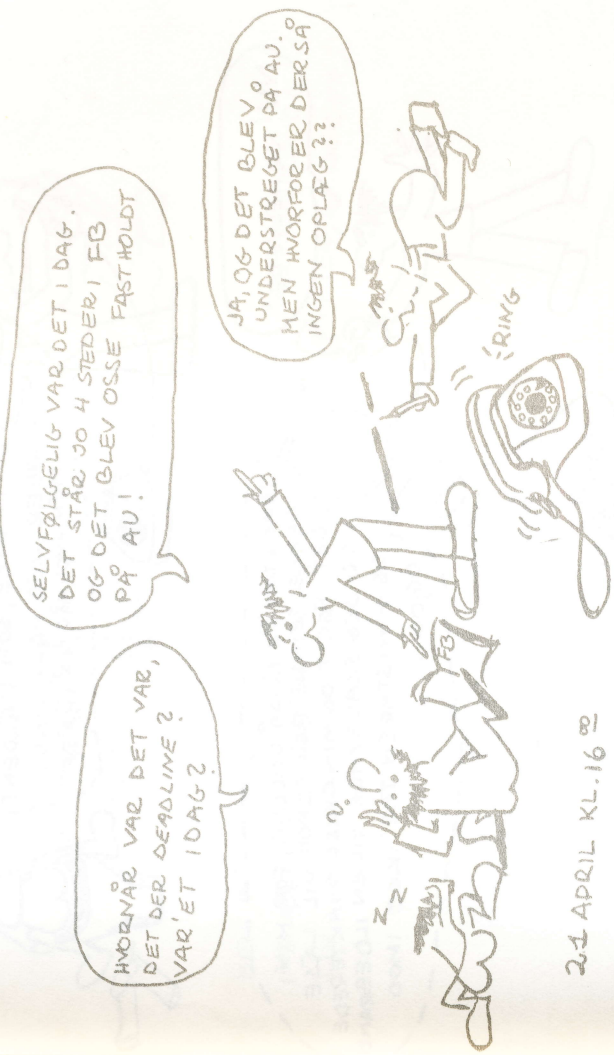 HVORNÅR VAR DET VAR,
DET DER DEADLINE?
VAR'ET IDAG?
SELVFØLGELIG VAR DET I DAG.
DET STÅR JO 4 STEDER I FB
OG DET BLEV OSSE FASTHOLDT
PÅ AU!
JA, OG DET BLEV
UNDERSTREGET PÅ AU.
MEN HVORFOR ER DER SÅ
INGEN OPLÆG??
Z Z
FB
RING
21 APRIL KL. 16 00